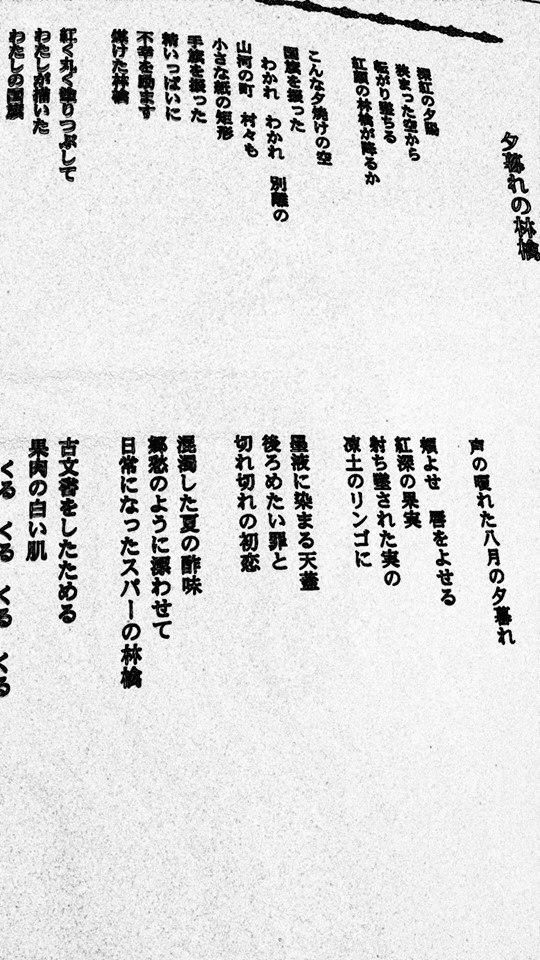 夕暮れの林檎
深紅の夕陽
狭まった空から
転がり墜ちる
紅顔の林檎が降るか
こんな夕焼けの空
国旗を振った
わかれ わかれ 別離の
山河の町 村々も
小さな紙の矩形
手旗を振った
精いっぱいに
不幸を励ます
煤けた林檎
紅く丸く塗りつぶして
わたしが描いた
わたしの国旗
声の嗄れた八月の夕暮れ
頬よせ 唇をよせる
紅深の果実
射ち墜された実の
凍土のリンゴに
墨液に染まる天蓋
後ろめたい罪と
切れ切れの初恋
混濁した夏の酢味
郷愁のように漂わせて
日常になったスパーの林檎
古文書をしたためる
果肉の白い肌
くる くる くる くる